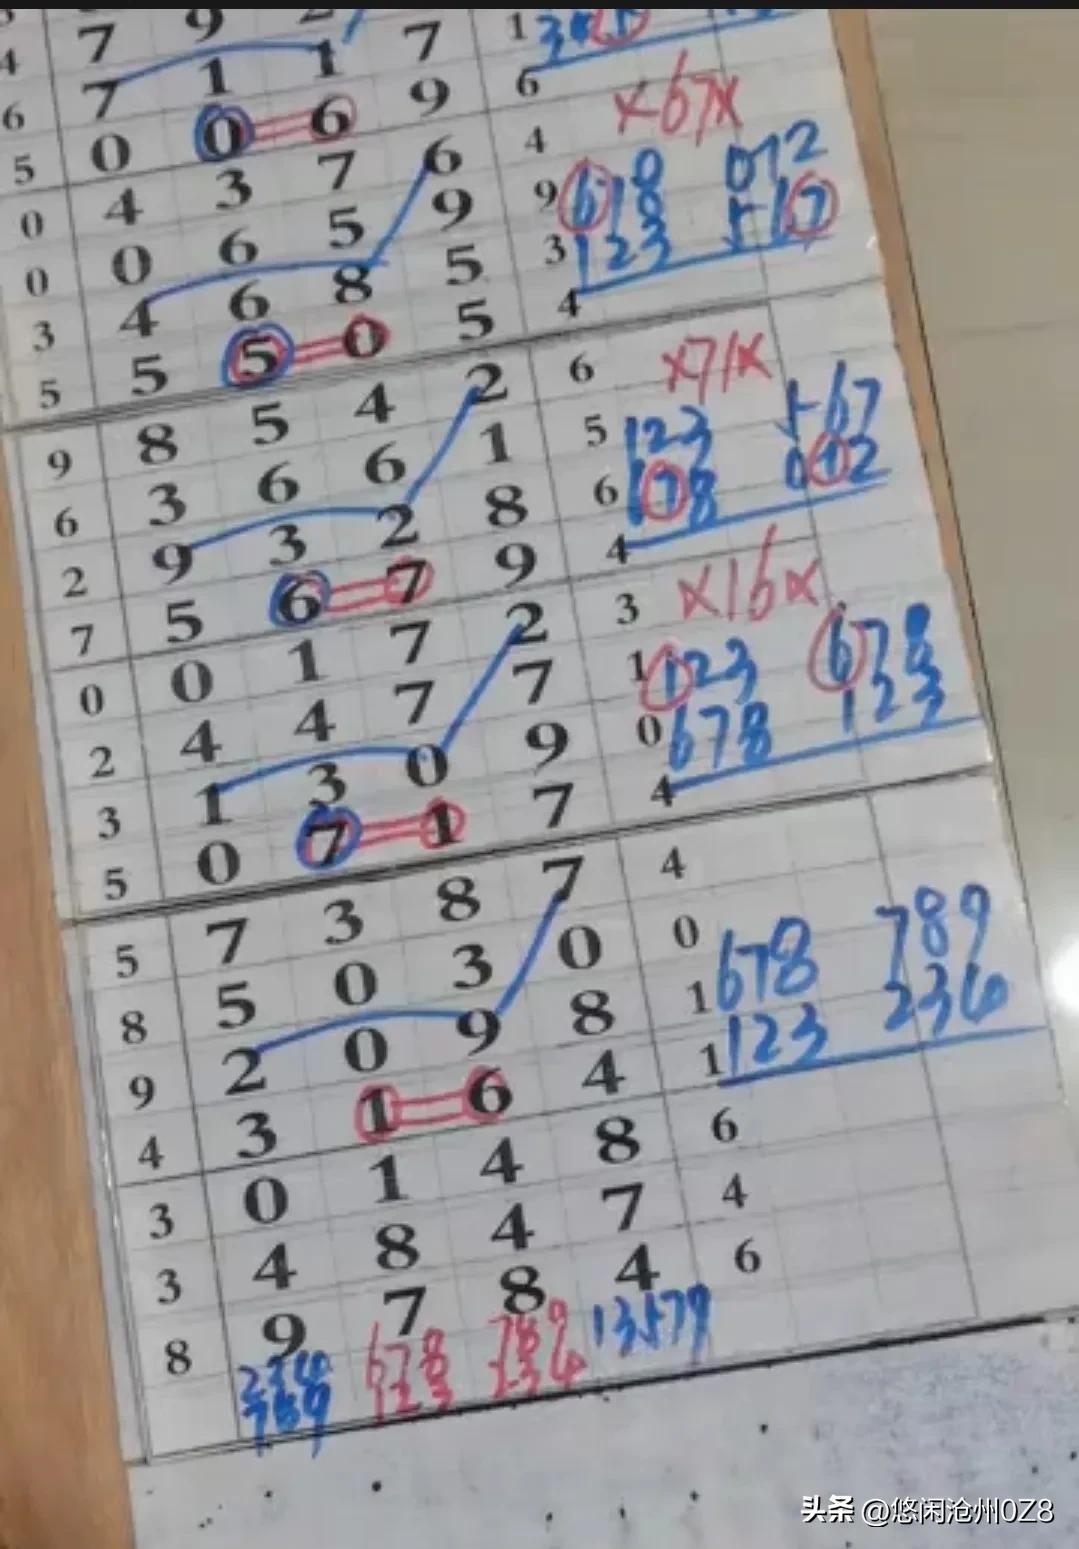 4 7 9 7 1
6 7 1 1 7 6
5 0 0 6 9 4 ×67×
0 4 3 7 6 9 678 072
0 0 6 5 9 3 123 517
3 4 6 8 5 4
5 5 5 0 5
9 8 5 4 2 6 ×71×
6 3 6 6 1 5 123 567
2 9 3 2 8 6 678 012
7 5 6 7 9 4
0 0 1 7 2 3 ×16×
2 4 4 7 7 1 123 678
3 1 3 0 9 0 678 123
5 0 7 1 7 4
5 7 3 8 7 4
8 5 0 3 0 0 678 789
9 2 0 9 8 1 123 234
4 3 1 6 4 1
3 0 1 4 8 6
3 4 8 4 7 4
8 9 7 8 4 6
234 678 789 13579
789 123 234
头条 @悠闲沧州0Z8